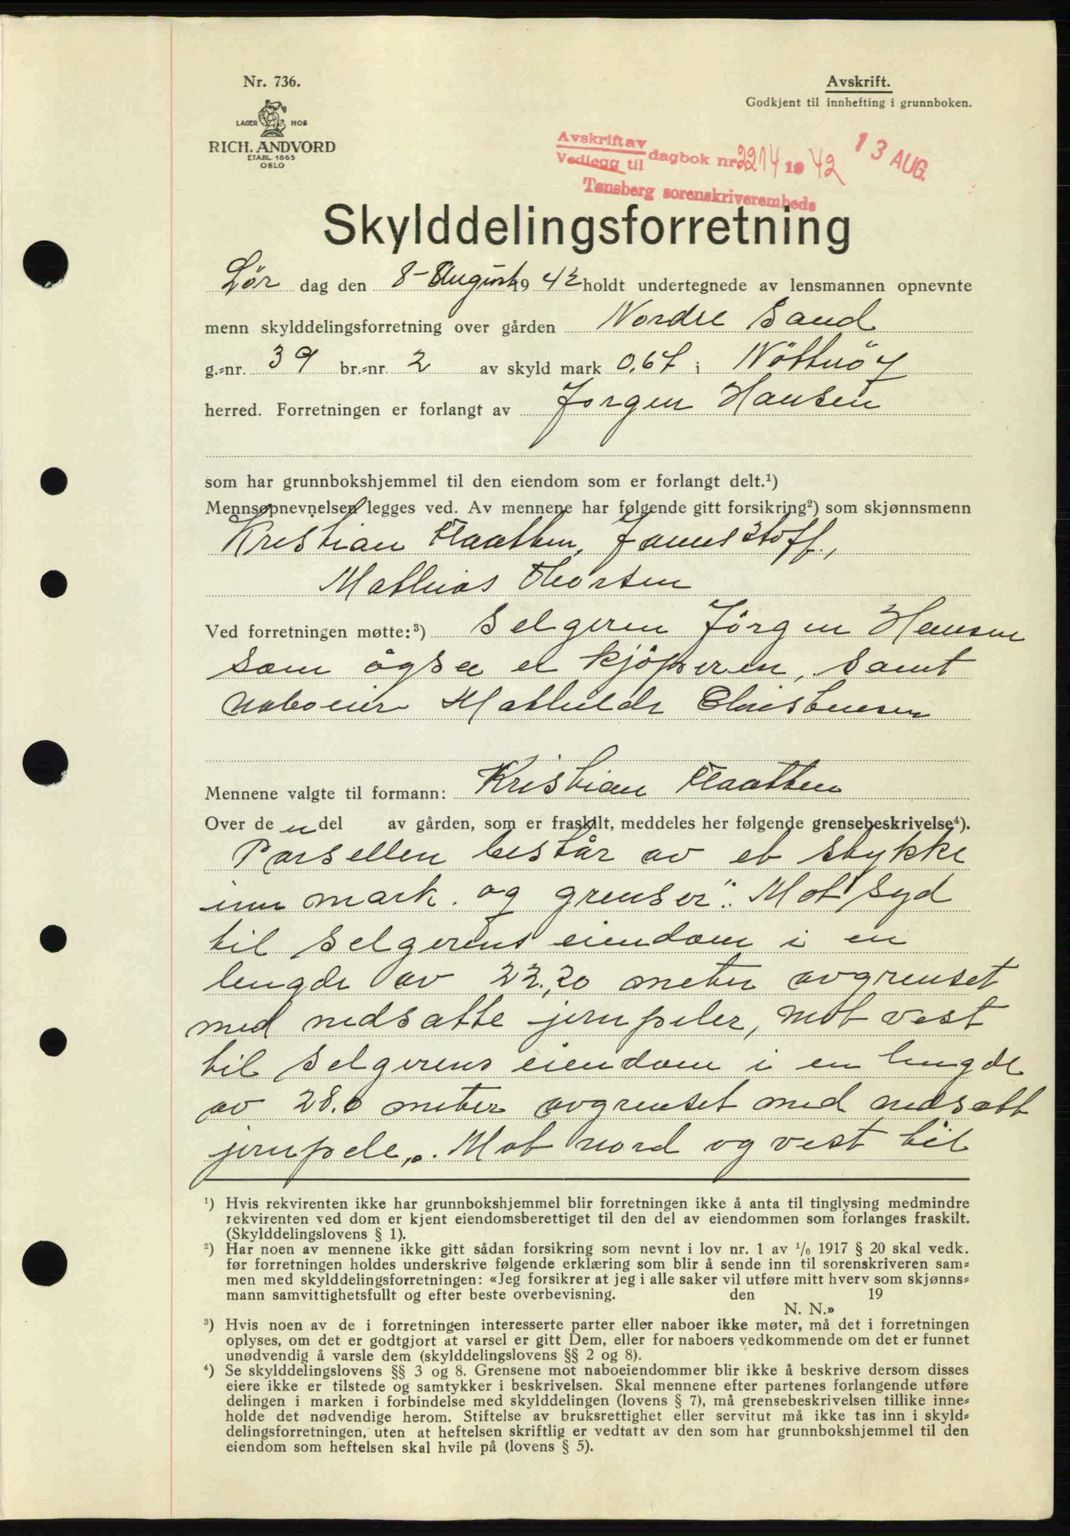 Nr. 736.
LAGER HOS
RICH. ANDVORD
ETABL. 1865
OSLO
Avskrift.
Godkjent til innhefting i grunnboken.
Avskrift av
Vedlegg til dagbok nr. 2214 1942
Tønsberg sorenskriverembede
13 AUG.
Skylddelingsforretning
Lør dag den 8 August 1942 holdt undertegnede av lensmannen opnevnte
menn skylddelingsforretning over gården Nordre Sand
g.-nr. 39 br.-nr. 2 av skyld mark 0,67 i Nötteröy
herred. Forretningen er forlangt av Jørgen Hansen
som har grunnbokshjemmel til den eiendom som er forlangt delt.¹)
Mennsopnevnelsen legges ved. Av mennene har følgende gitt forsikring²) som skjønnsmenn
Kristian Flaatten,
Mathias Thorsen
Ved forretningen møtte:³) Selgeren Jörgen Hansen
som ögsaa er kjöperen, samt
naboeier Mathilde Christensen
Mennene valgte til formann: Kristian Flaatten
Over de en del av gården, som er fraskilt, meddeles her følgende grensebeskrivelse⁴).
Parsellen består av et stykke
inn mark. og grenser": Mot syd
til selgerens eiendom i en
lengde av 22,20 meter avgrenset
med nedsatte jernpeler, mot vest
til selgerens eiendom i en lengde
av 28.0 meter avgrenset med nedsatt
jernpele,. Mot nord og vest til
¹) Hvis rekvirenten ikke har grunnbokshjemmel blir forretningen ikke å anta til tinglysing medmindre
rekvirenten ved dom er kjent eiendomsberettiget til den del av eiendommen som forlanges fraskilt.
(Skylddelingslovens § 1).
²) Har noen av mennene ikke gitt sådan forsikring som nevnt i lov nr. 1 av 1/6 1917 § 20 skal vedk.
før forretningen holdes underskrive følgende erklæring som blir å sende inn til sorenskriveren sam-
men med skylddelingsforretningen: «Jeg forsikrer at jeg i alle saker vil utføre mitt hverv som skjønns-
mann samvittighetsfullt og efter beste overbevisning. den 19
N. N.»
³) Hvis noen av de i forretningen interesserte parter eller naboer ikke møter, må det i forretningen
oplyses, om det er godtgjort at varsel er gitt Dem, eller for naboers vedkommende om det er funnet
unødvendig å varsle dem (skylddelingslovens §§ 2 og 8).
⁴) Se skylddelingslovens §§ 3 og 8. Grensene mot naboeiendommer blir ikke å beskrive dersom disses
eiere ikke er tilstede og samtykker i beskrivelsen. Skal mennene efter partenes forlangende utføre
delingen i marken i forbindelse med skylddelingen (lovens § 7), må grensebeskrivelsen tillike inne-
holde det nødvendige herom. Stiftelse av bruksrettighet eller servitut må ikke tas inn i skyld-
delingsforretningen, uten at heftelsen skriftlig er vedtatt av den som har grunnbokshjemmel til den
eiendom som heftelsen skal hvile på (lovens § 5).